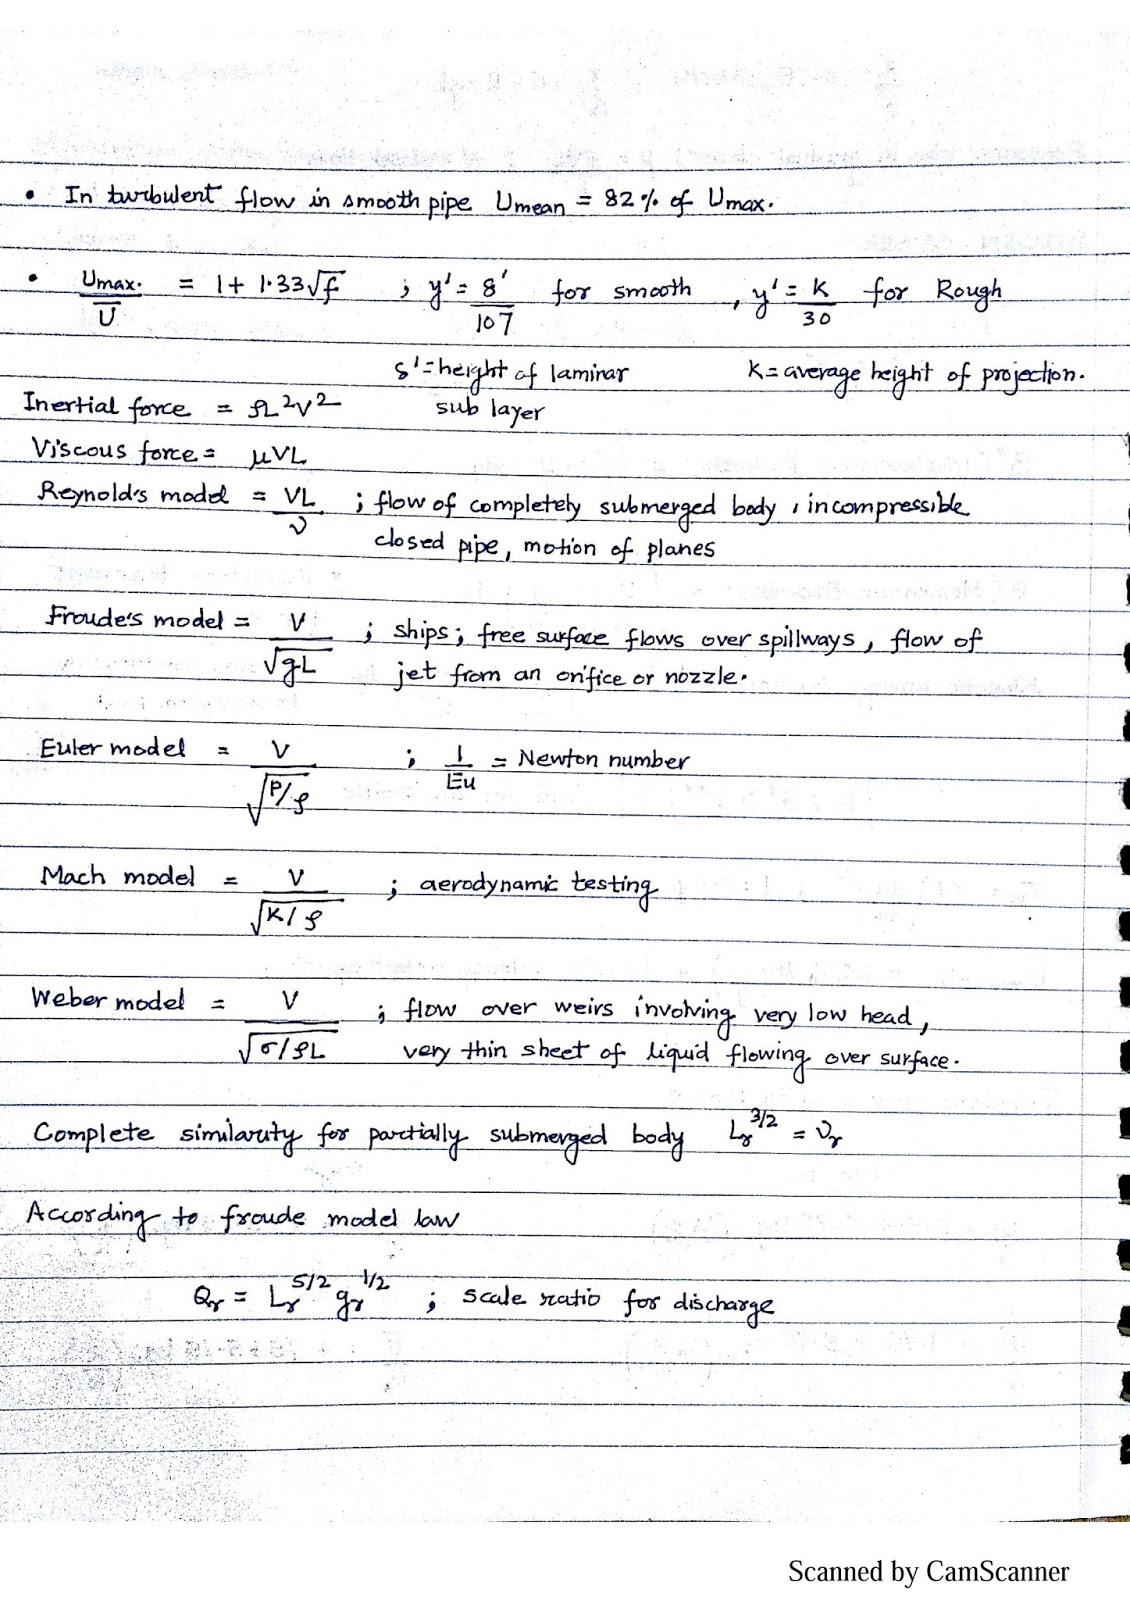 • In turbulent flow in smooth pipe Umean = 82% of Umax.
• Umax. / U̅ = 1 + 1.33√f ; y' = δ'/107 for smooth , y' = K/30 for Rough
δ' = height of laminar sub layer
K = average height of projection.
Inertial force = ρL²V²
Viscous force = μVL
Reynold's model = VL/ν ; flow of completely submerged body , incompressible
closed pipe, motion of planes
Froude's model = V/√gL ; ships; free surface flows over spillways, flow of
jet from an orifice or nozzle.
Euler model = V/√P/ρ ; 1/Eu = Newton number
Mach model = V/√K/ρ ; aerodynamic testing
Weber model = V/√σ/ρL ; flow over weirs involving very low head,
very thin sheet of liquid flowing over surface.
Complete similarity for partially submerged body Lr^3/2 = νr
According to froude model law
Qr = Lr^5/2 gr^1/2 ; scale ratio for discharge
Scanned by CamScanner